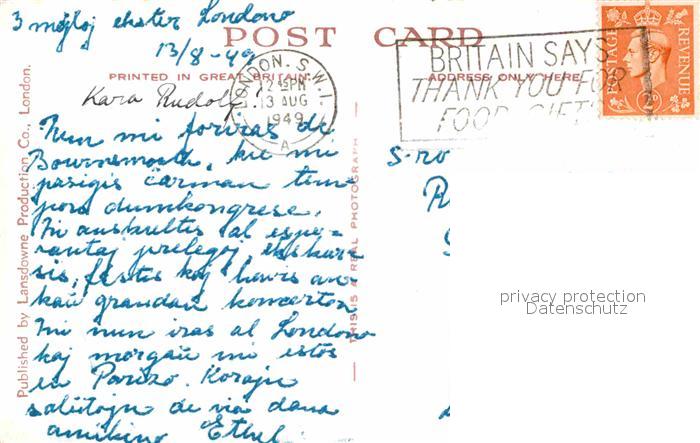 3 mejloj ekster Londono
13/8-49
POST CARD
PRINTED IN GREAT BRITAIN
ADDRESS ONLY HERE
LONDON. S.W.1.
12 45 PM
13 AUG
1949
A
BRITAIN SAYS
THANK YOU FOR
FOOD GIFTS
POSTAGE REVENUE
2
Kara Rudolf!
Nun mi foriras de
Bournemouth, kie mi
pasigis ĉarman tem-
pon dumkongrese.
Ni auskultis al espe-
rantaj prelegoj, ekskur-
sis, festis kaj havis an-
kaŭ grandan koncerton
Mi nun iras al Londono
kaj morgaŭ mi estos
en Parizo. Korajn
salutojn de via dana
amikino Ethel.
S-ro
R
Published by Lansdowne Production Co., London.
THIS IS A REAL PHOTOGRAPH
privacy protection
Datenschutz